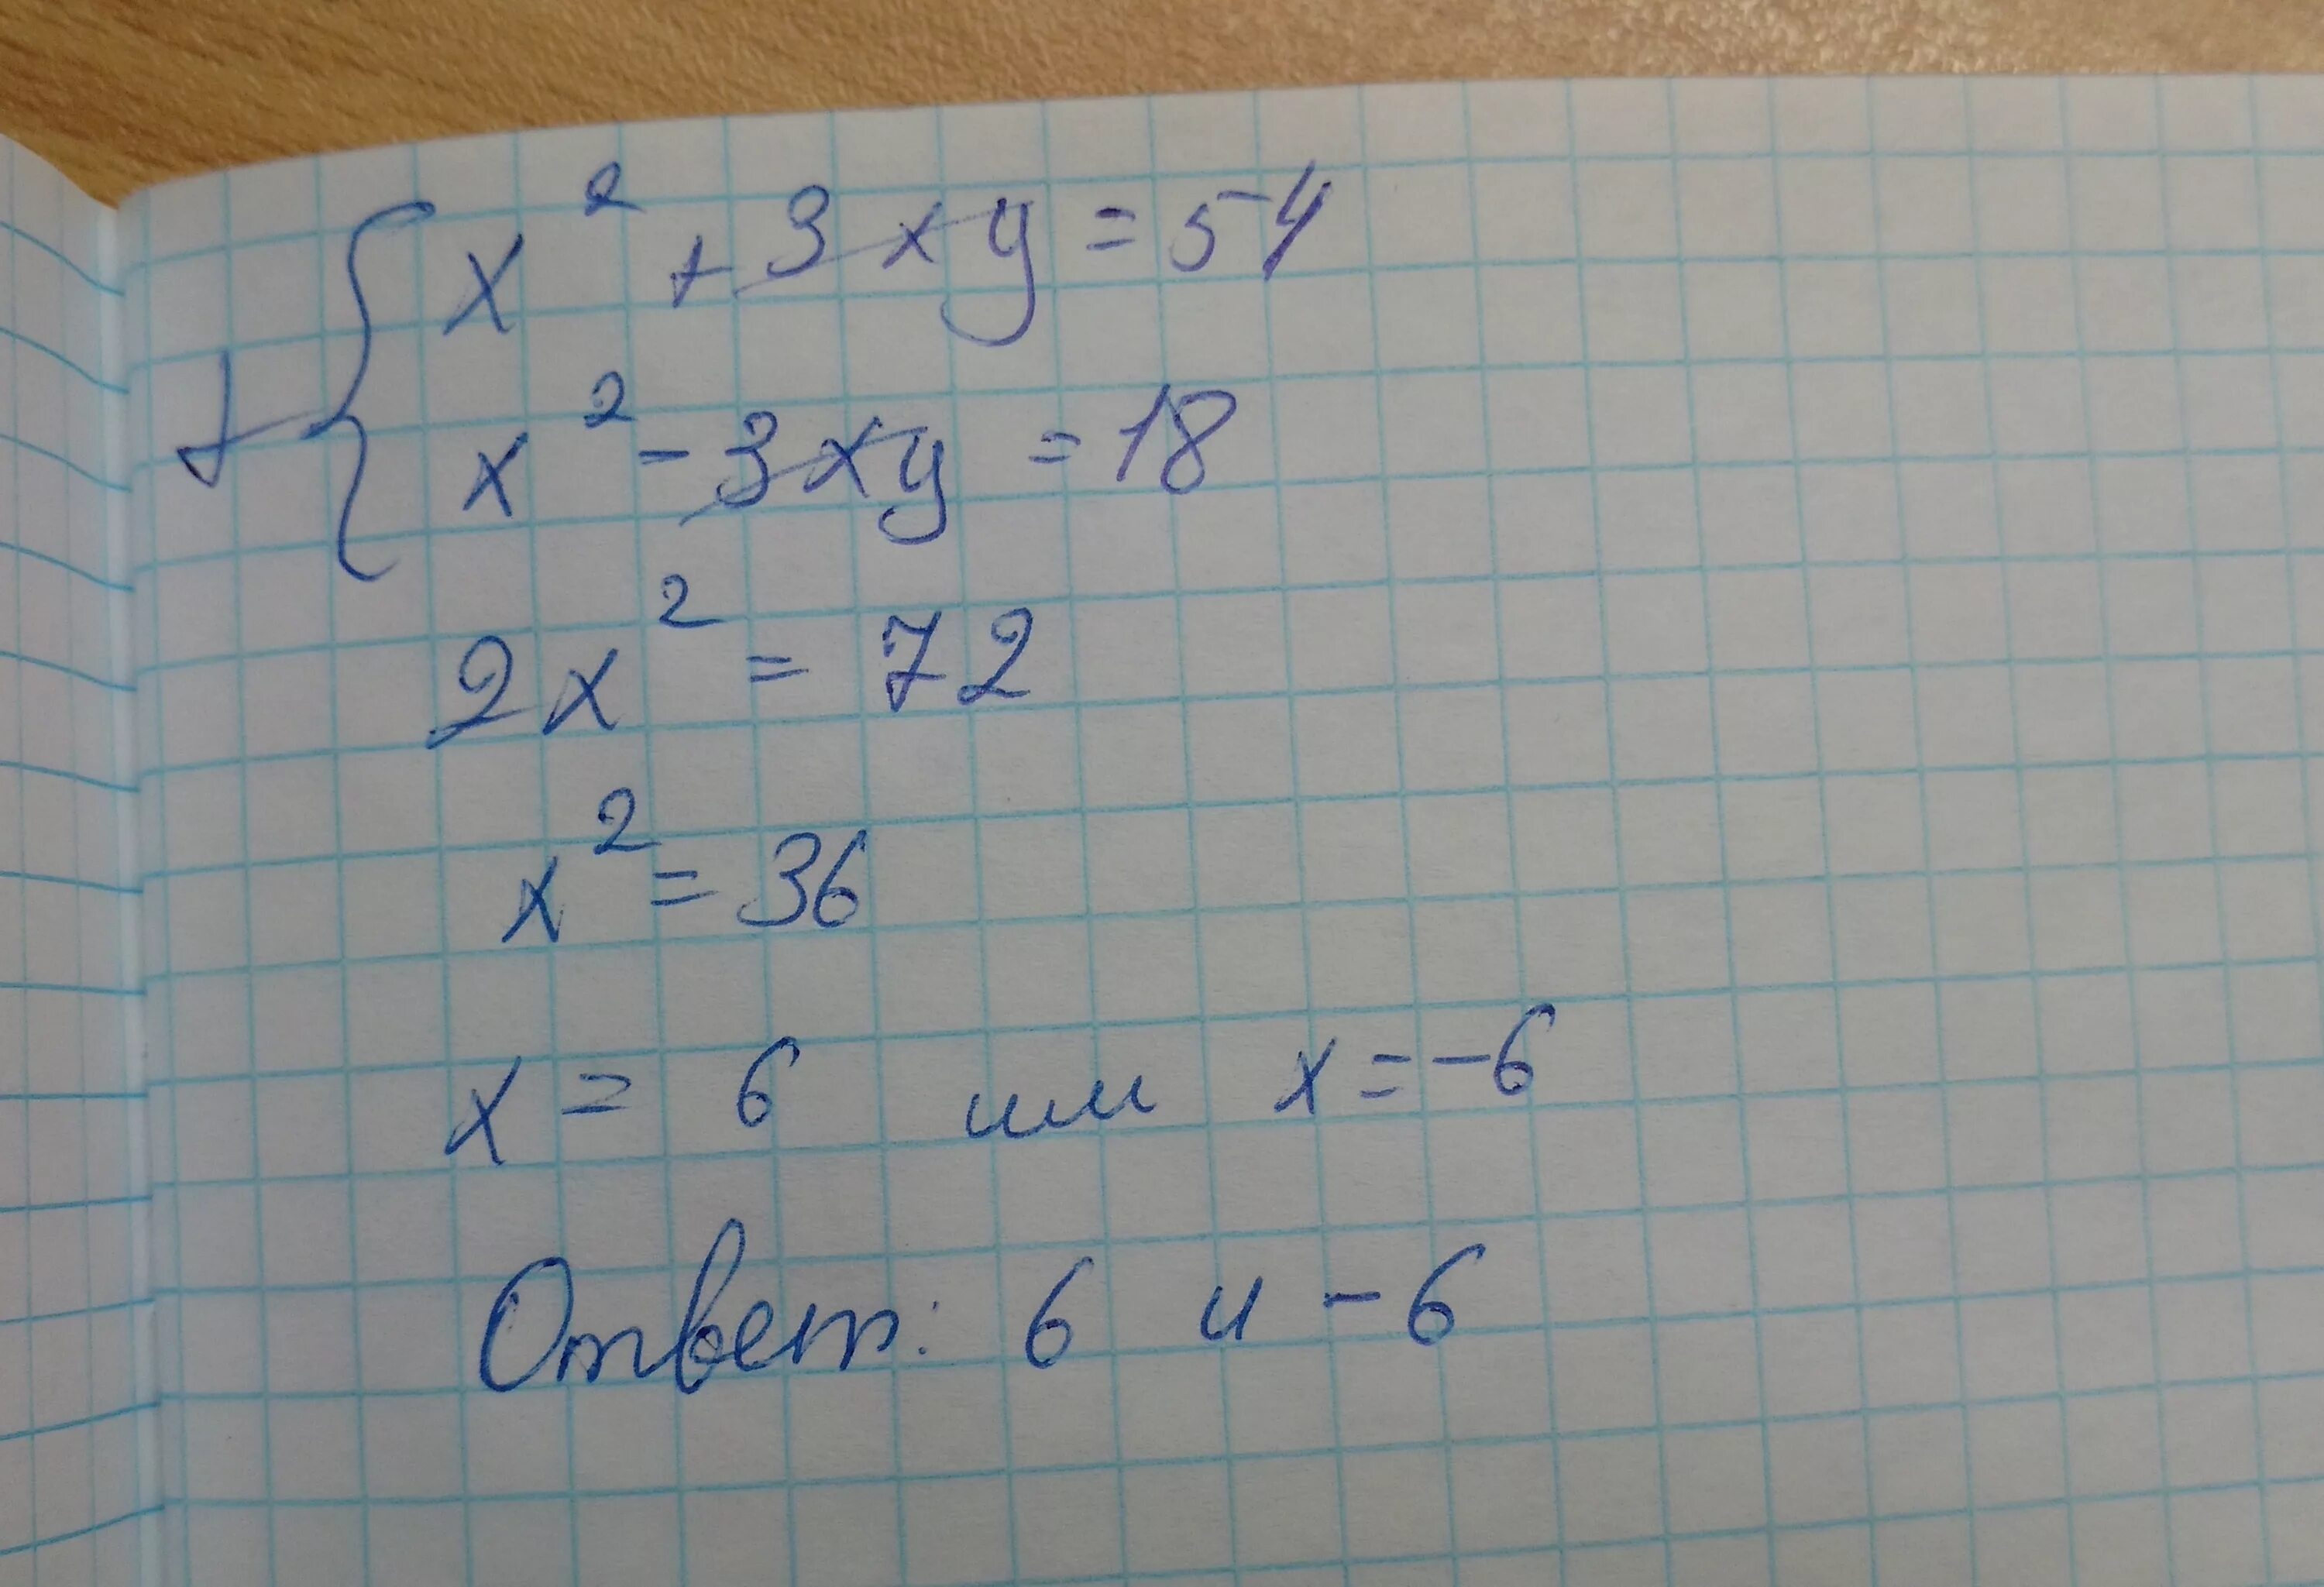 + { x² + 3xy = 54
x² - 3xy = 18
2x² = 72
x² = 36
x = 6 или x = -6
Ответ: 6 и -6